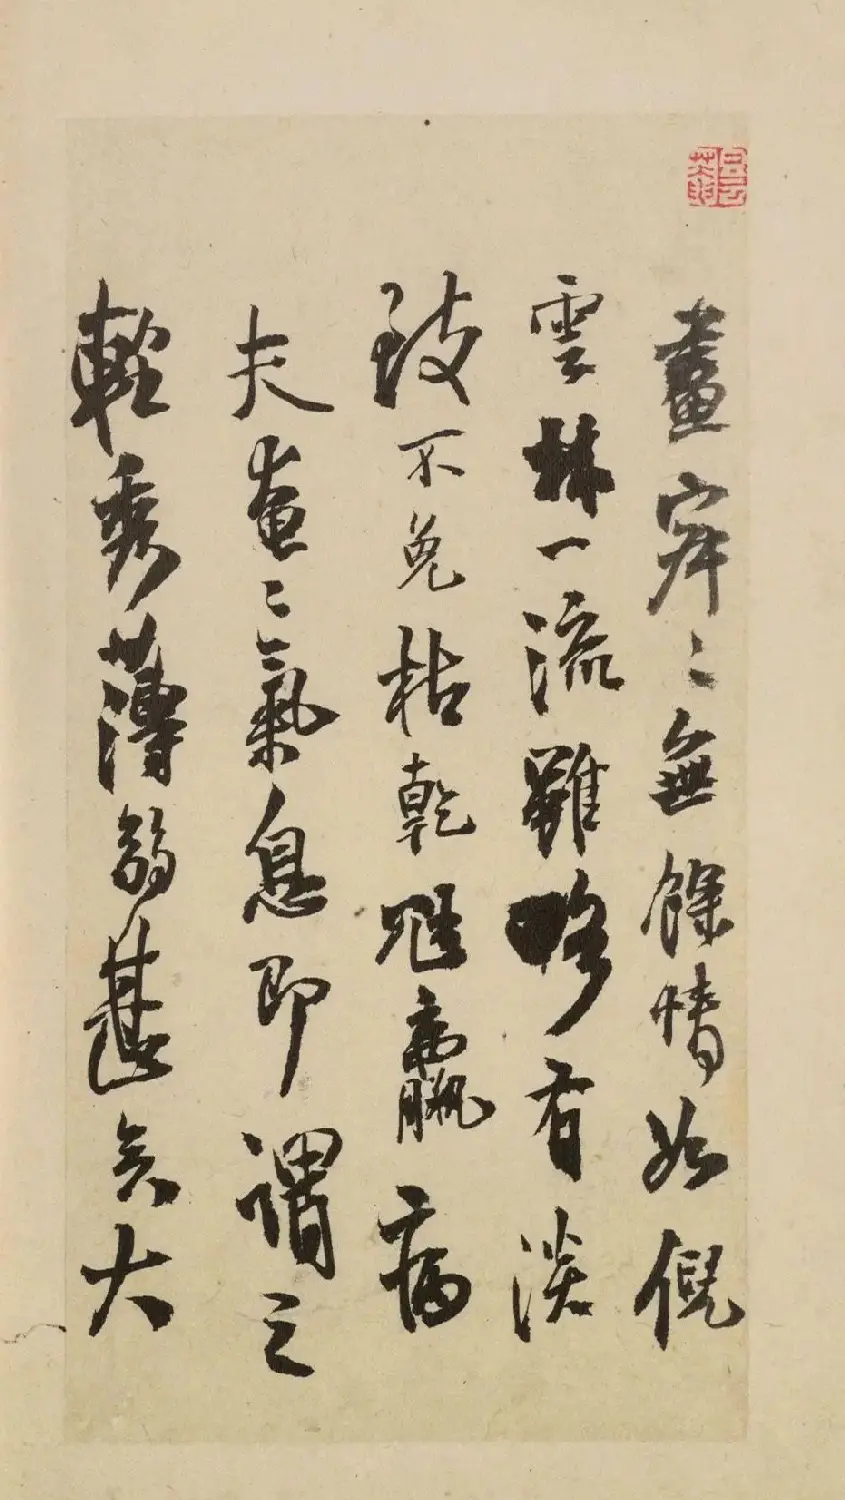 畫寂寂無餘情如倪
雲林一流雖略有淡
致不免枯乾尫羸病
夫奄奄氣息即謂之
輕秀薄弱甚矣大